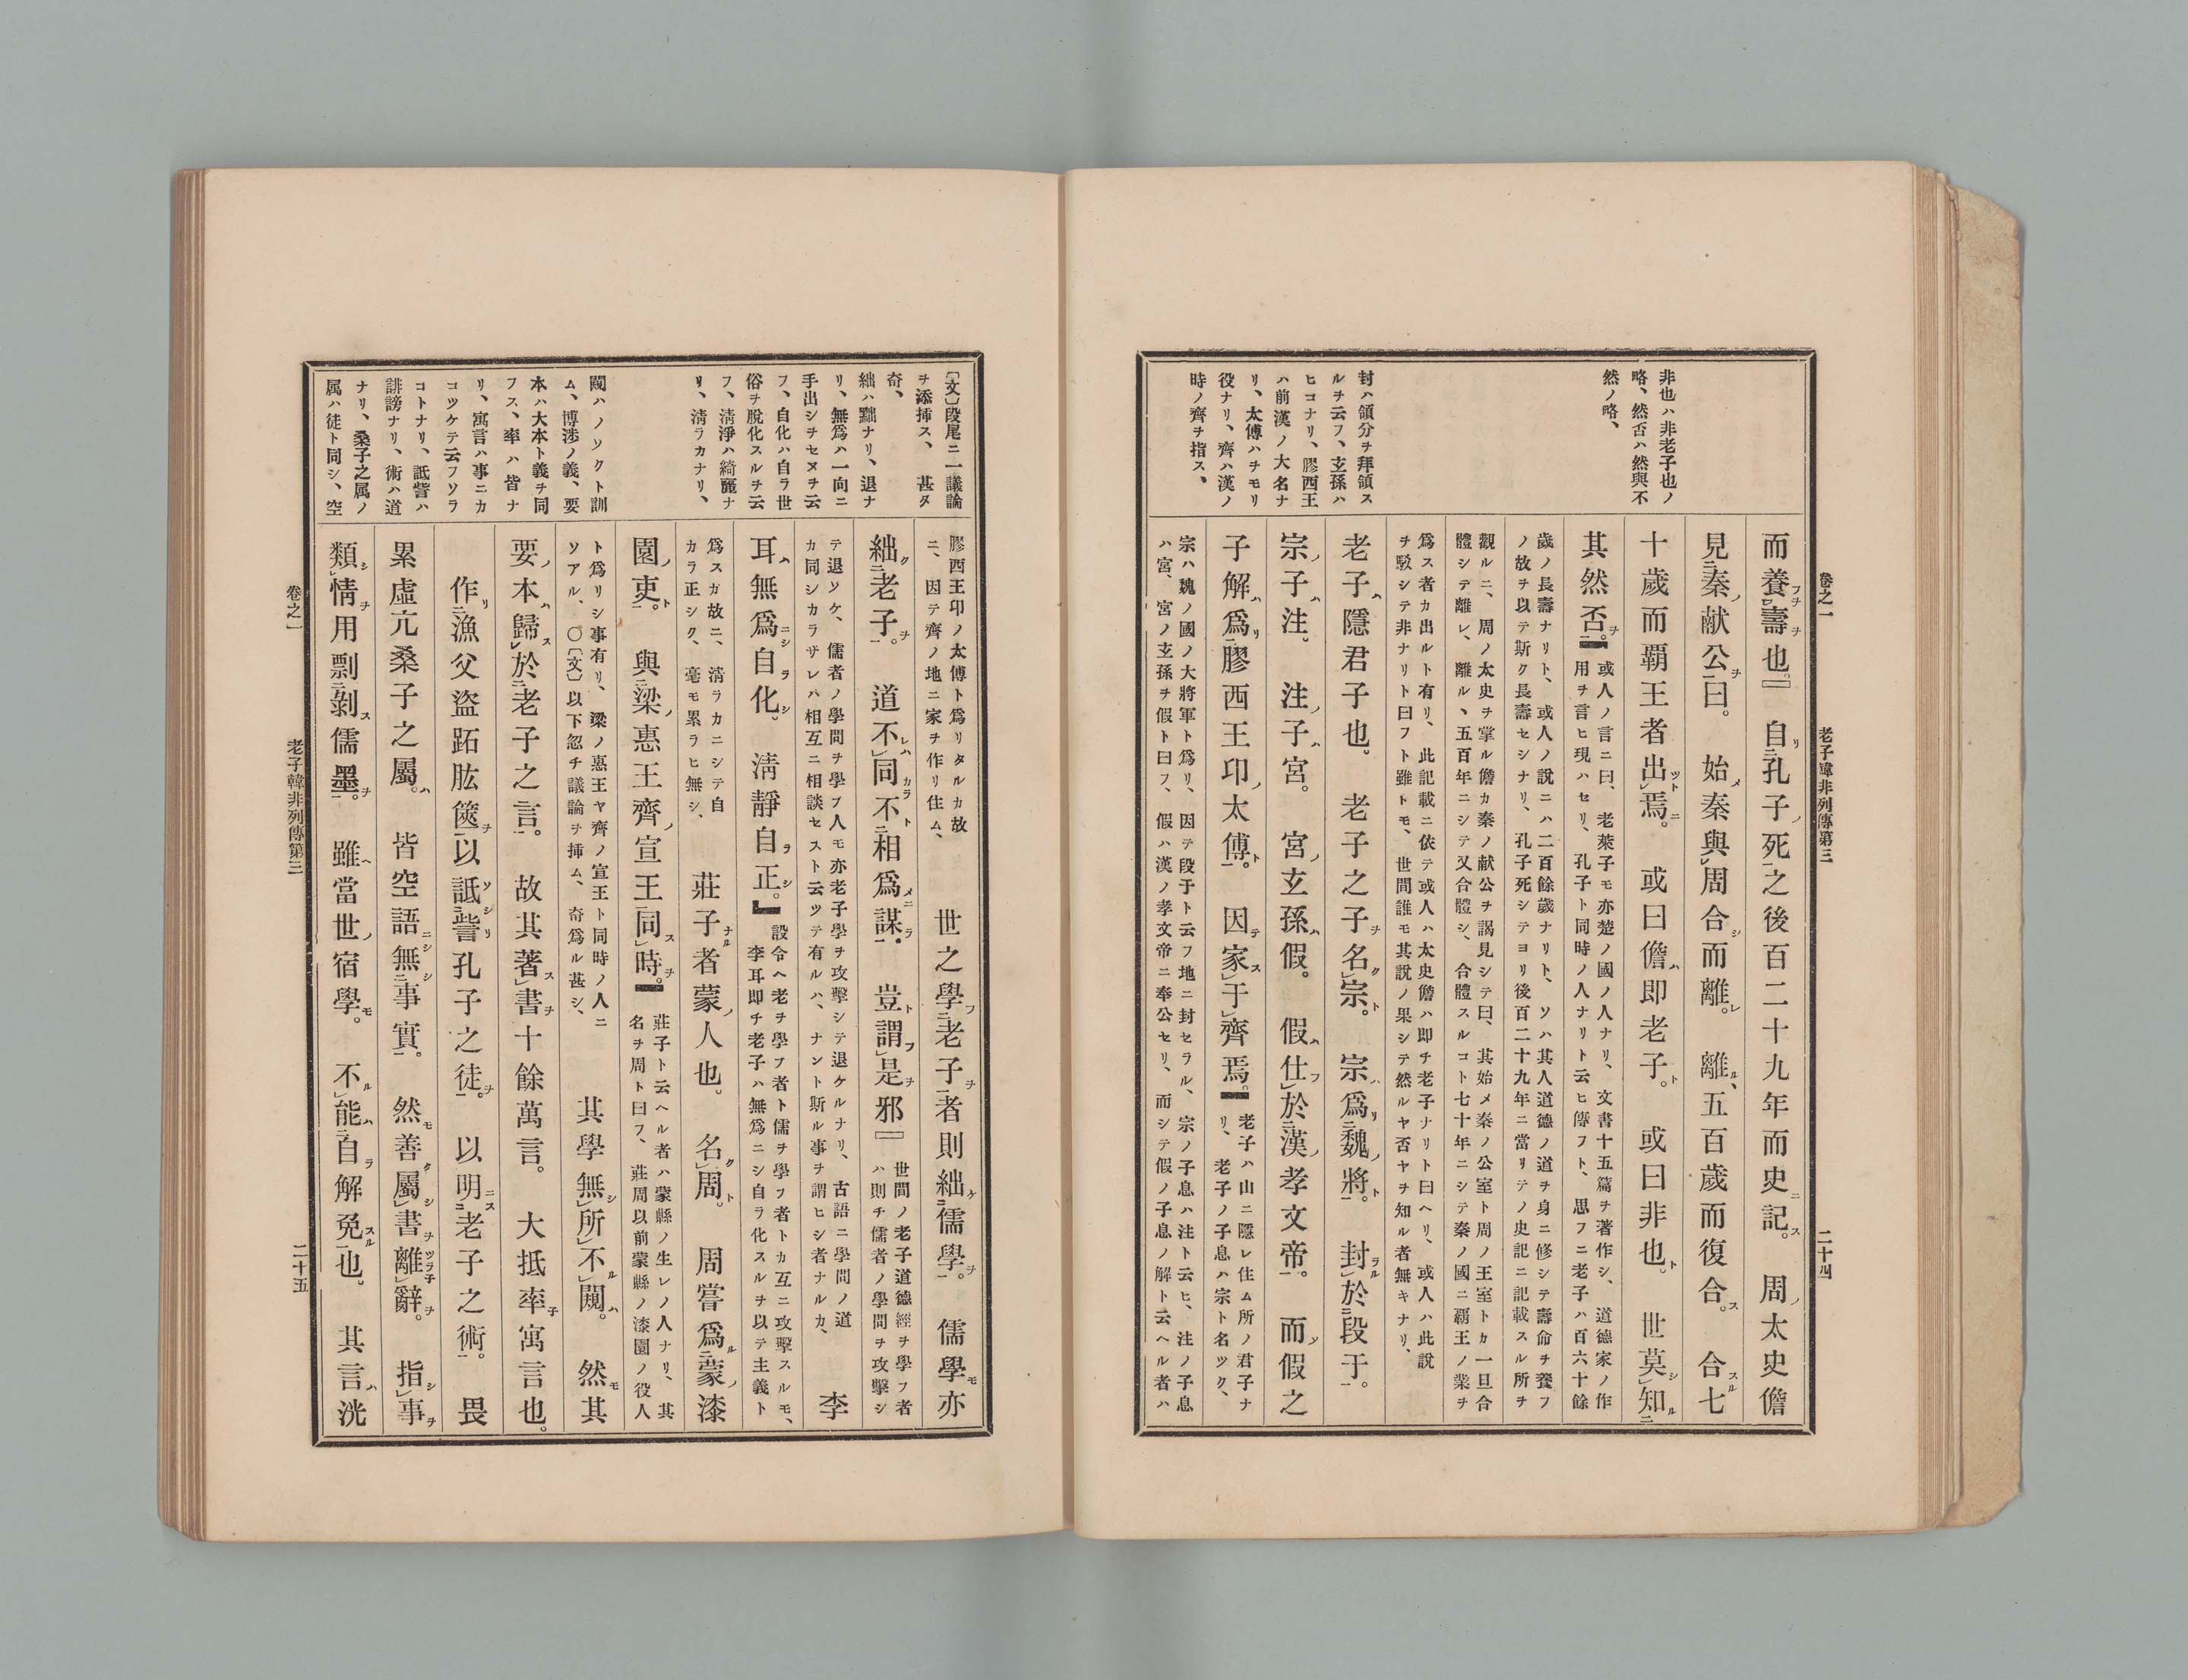 卷之一 老子韓非列傳第三 二十四
非也ハ非老子也ノ
略、然否ハ然與不
然ノ略、
封ハ領分ヲ拜領ス
ルヲ云フ、玄孫ハ
ヒコナリ、膠西王
ハ前漢ノ大名ナ
リ、太傅ハヲモリ
役ナリ、齊ハ漢ノ
時ノ齊ヲ指ス、
而養壽也。自孔子死之後百二十九年而史記。周太史儋
見秦献公曰。始秦與周合而離。離、五百歲而復合。合七
十歲而覇王者出焉。或曰儋即老子。或曰非也。世莫知
其然否。
或人ノ言ニ曰、老萊子モ亦楚ノ國ノ人ナリ、文書十五篇ヲ著作シ、道德家ノ作
用ヲ言ヒ現ハセリ、孔子ト同時ノ人ナリト云ヒ傳フト、思フニ老子ハ百六十餘
歲ノ長壽ナリト、或人ノ說ニハ二百餘歲ナリト、ソハ其人道德ノ道ヲ身ニ修シテ壽命ヲ養フ
ノ故ヲ以テ斯ク長壽セシナリ、孔子死シテヨリ後百二十九年ニ當リテノ史記ニ記載スル所ヲ
觀ルニ、周ノ太史ヲ掌ル儋カ秦ノ献公ヲ謁見シテ曰、其始メ秦ノ公室ト周ノ王室トカ一旦合
體シテ離レ、離ル、五百年ニシテ又合體シ、合體スルコト七十年ニシテ秦ノ國ニ覇王ノ業ヲ
爲ス者カ出ルト有リ、此記載ニ依テ或人ハ太史儋ハ即チ老子ナリト曰ヘリ、或人ハ此說
ヲ駁シテ非ナリト曰フト雖トモ、世間誰モ其說ノ果シテ然ルヤ否ヤヲ知ル者無キナリ、
老子隱君子也。老子之子名宗。宗爲魏將。封於段于。
宗子注。注子宮。宮玄孫假。假仕於漢孝文帝。而假之
子解爲膠西王印太傅。因家于齊焉。
老子ハ山ニ隱レ住ム所ノ君子ナ
リ、老子ノ子息ハ宗ト名ツク、
宗ハ魏ノ國ノ大將軍ト爲リ、因テ段于ト云フ地ニ封セラル、宗ノ子息ハ注ト云ヒ、注ノ子息
ハ宮、宮ノ玄孫ヲ假ト曰フ、假ハ漢ノ孝文帝ニ奉公セリ、而シテ假ノ子息ノ解ト云ヘル者ハ
〔文〕段尾ニ一議論
ヲ添挿ス、甚タ
奇、
絀ハ黜ナリ、退ナ
リ、無爲ハ一向ニ
手出シヲセヌヲ云
フ、自化ハ自ラ世
俗ヲ脫化スルヲ云
フ、淸淨ハ綺麗ナ
リ、淸ラカナリ、
闚ハノソクト訓
ム、博涉ノ義、要
本ハ大本ト義ヲ同
フス、率ハ皆ナ
リ、寓言ハ事ニカ
コツケテ云フソラ
コトナリ、詆訾ハ
誹謗ナリ、術ハ道
ナリ、桑子之属ノ
属ハ徒ト同シ、空
膠西王印ノ太傅ト爲リタルカ故
ニ、因テ齊ノ地ニ家ヲ作リ住ム、
世之學老子者則絀儒學。儒學亦
絀老子。道不同不相爲謀。豈謂是邪
世間ノ老子道德經ヲ學フ者
ハ則チ儒者ノ學問ヲ攻擊シ
テ退ソケ、儒者ノ學問ヲ學フ人モ亦老子學ヲ攻擊シテ退ケルナリ、古語ニ學問ノ道
カ同シカラサレハ相互ニ相談セスト云ツテ有ルハ、ナント斯ル事ヲ謂ヒシ者ナルカ、
李
耳無爲自化。淸靜自正。
設令ヘ老ヲ學フ者ト儒ヲ學フ者トカ互ニ攻擊スルモ、
李耳即チ老子ハ無爲ニシ自ラ化スルヲ以テ主義ト
爲スガ故ニ、淸ラカニシテ自
カラ正シク、毫モ累ラヒ無シ、
莊子者蒙人也。名周。周嘗爲蒙漆
園吏。與梁惠王齊宣王同時。
莊子ト云ヘル者ハ蒙縣ノ生レノ人ナリ、其
名ヲ周ト曰フ、莊周以前蒙縣ノ漆園ノ役人
ト爲リシ事有リ、梁ノ惠王ヤ齊ノ宣王ト同時ノ人ニ
ソアル、〇〔文〕以下忽チ議論ヲ挿ム、奇爲ル甚シ、
其學無所不闚。然其
要本歸於老子之言。故其著書十餘萬言。大抵率寓言也。
作漁父盜跖胠篋以詆訾孔子之徒。以明老子之術。畏
累虛亢桑子之屬。皆空語無事實。然善屬書離辭。指事
類情用剽剝儒墨。雖當世宿學。不能自解免也。其言洸
卷之一 老子韓非列傳第三 二十五